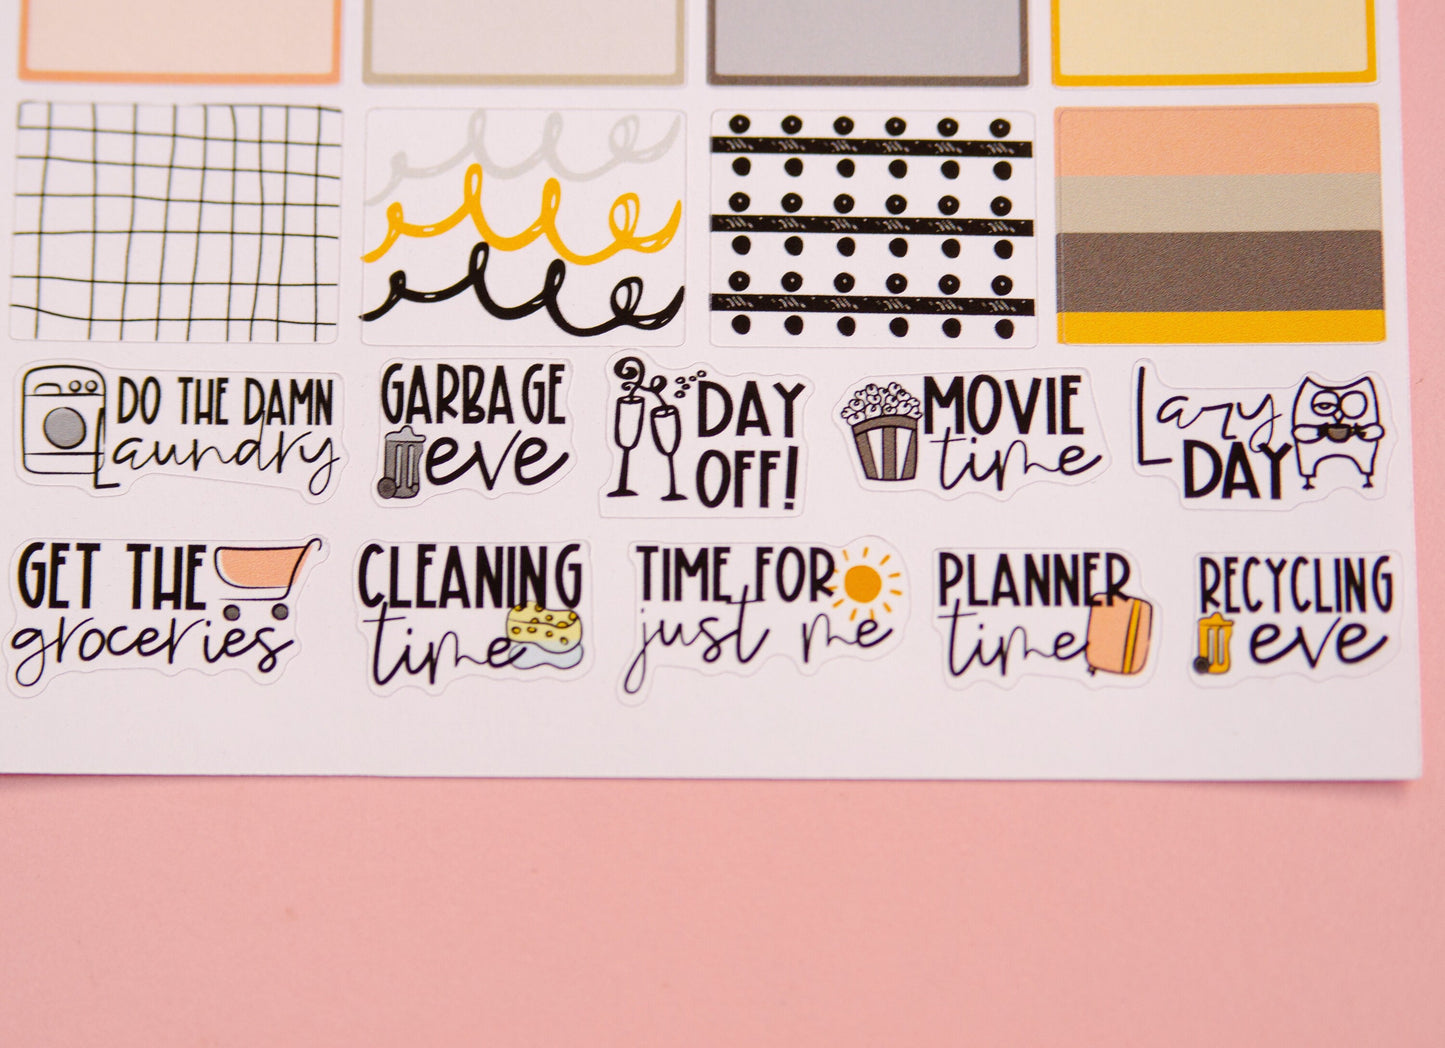 DO THE DAMN
Laundry
GARBAGE
eve
DAY
OFF!
MOVIE
time
Lazy
DAY
GET THE
groceries
CLEANING
time
TIME FOR
just me
PLANNER
time
RECYCLING
eve